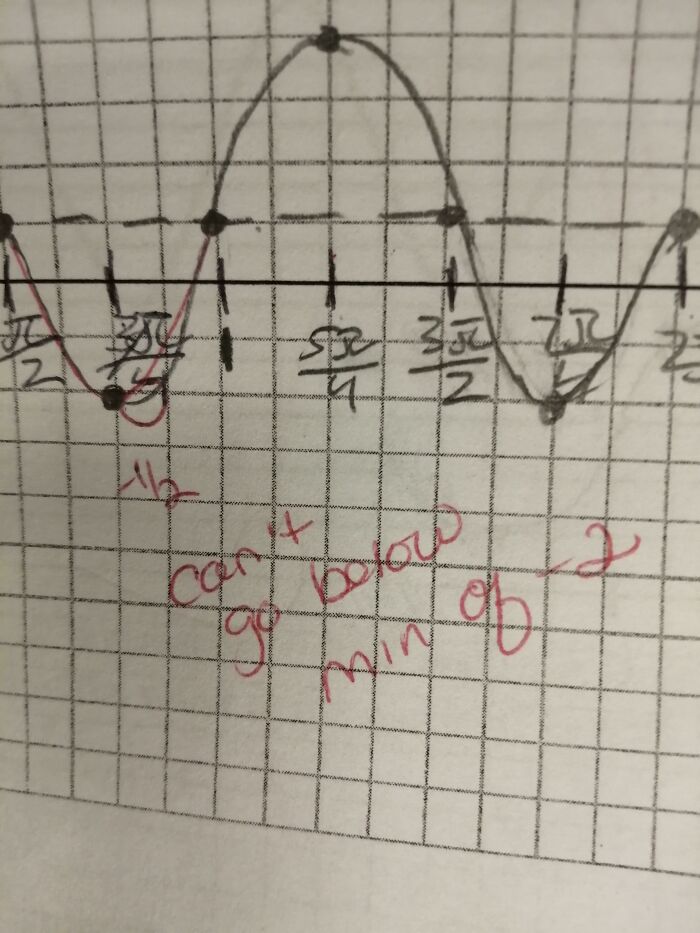 π/2 3π/4 1 5π/4 3π/2 7π/4
-1/2
can't
go below
min of -2